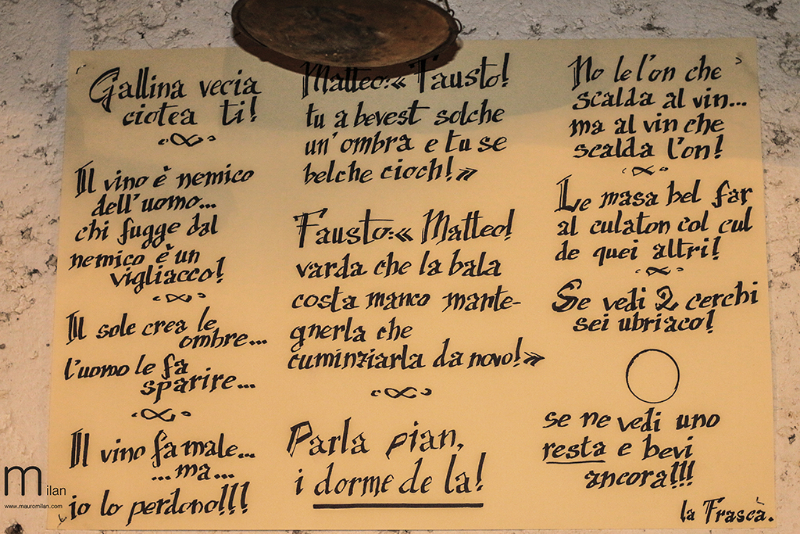 Gallina vecia
ciotea ti!
Il vino è nemico
dell'uomo...
chi fugge dal
nemico è un
vigliacco!
Il sole crea le
ombre...
l'uomo le fa
sparire...
Il vino fa male...
...ma...
io lo perdono!!!
Matteo:« Fausto!
tu a bevest solche
un'ombra e tu se
belche cioch!»
Fausto:« Matteo!
varda che la bala
costa manco mante-
gnerla che
cuminziarla da novo!»
Parla pian,
i dorme de la!
No le l'on che
scalda al vin...
ma al vin che
scalda l'on!
Le masa bel far
al culaton col cul
de quei altri!
Se vedi 2 cerchi
sei ubriaco!
se ne vedi uno
resta e bevi
ancora!!!
la Frascà.
milan
www.mauromilan.com